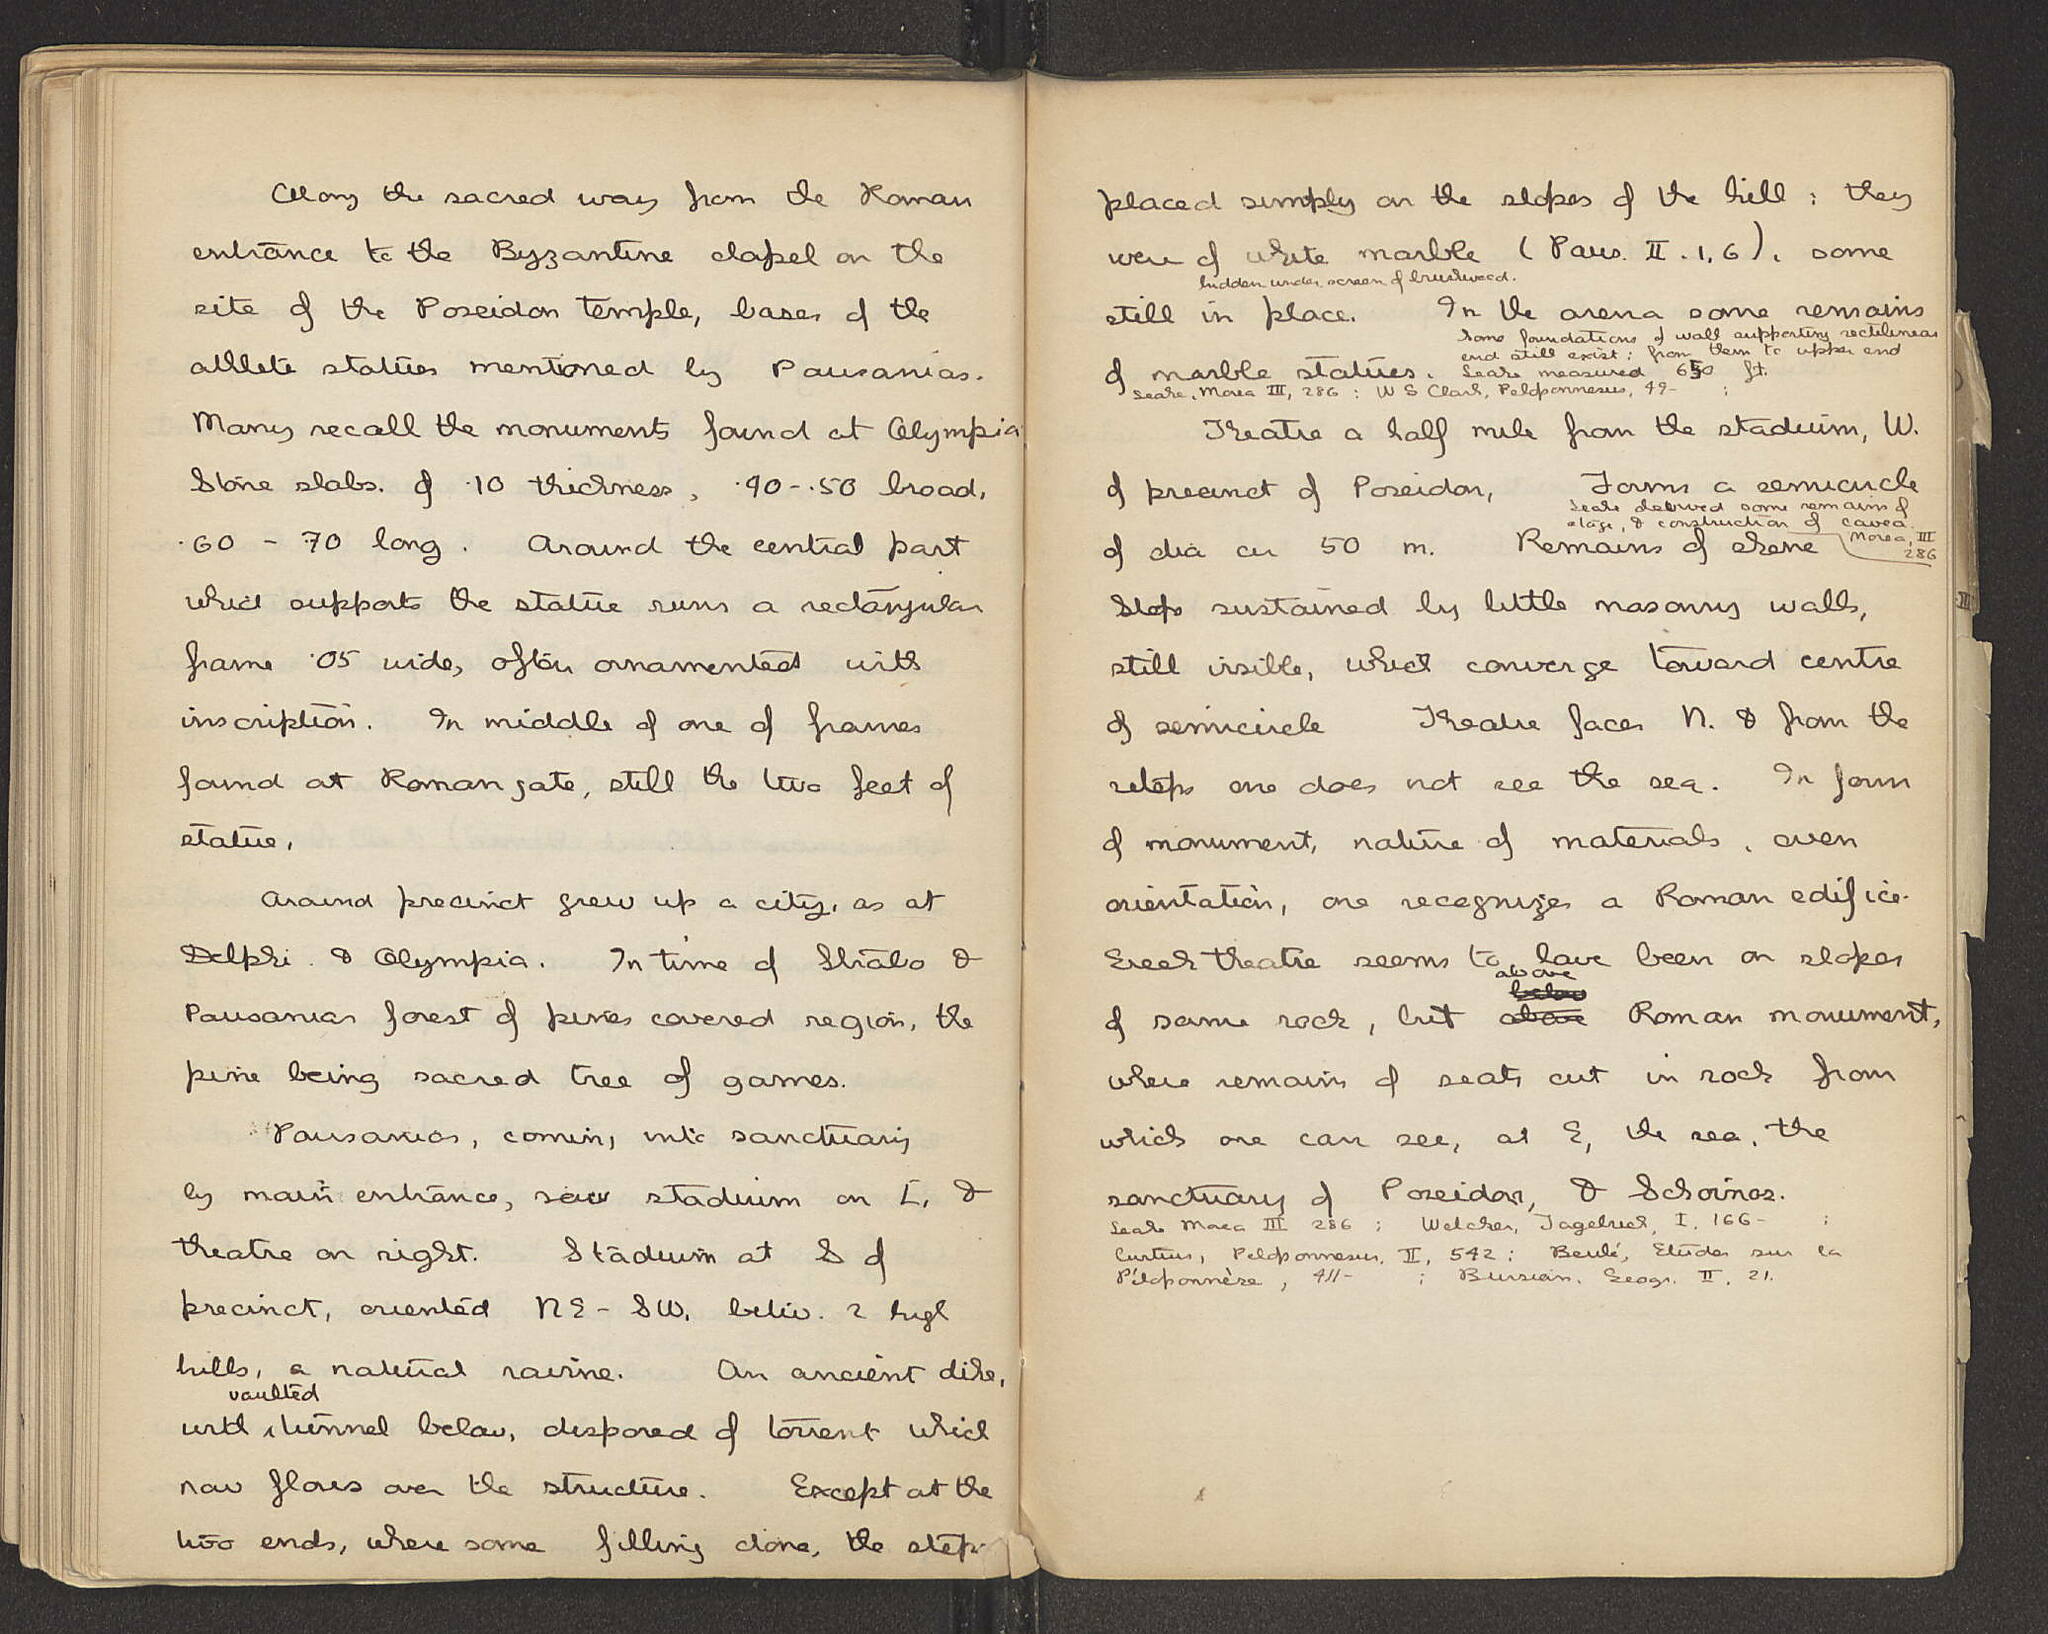 Along the sacred way from the Roman
entrance to the Byzantine chapel on the
site of the Poseidon temple, bases of the
athlete statues mentioned by Pausanias.
Many recall the monuments found at Olympia
Stone slabs. of .10 thickness, .40-.50 broad,
.60 - 70 long. Around the central part
which supports the statue runs a rectangular
frame .05 wide, often ornamented with
inscription. In middle of one of frames
found at Roman gate, still the two feet of
statue.
Around precinct grew up a city, as at
Delphi & Olympia. In time of Strabo &
Pausanias forest of pines covered region, the
pine being sacred tree of games.
Pausanias, coming into sanctuary
by main entrance, saw stadium on L. &
theatre on right. Stadium at S of
precinct, oriented NE - SW. betw. 2 high
hills, a natural ravine. An ancient dike,
vaulted
with tunnel below, disposed of torrent which
now flows over the structure. Except at the
two ends, where some filling done, the steps
placed simply on the slopes of the hill : they
were of white marble (Paus. II. 1, 6), some
hidden under screen of brushwood.
still in place. In the arena some remains
Some foundations of wall supporting rectilinear
end still exist : from them to upper end
of marble statues. Leake measured 650 ft.
Leake, Morea III, 286 : W S Clark, Peloponnesus, 49- ;
Theatre a half mile from the stadium, W.
of precinct of Poseidon, Forms a semicircle
Leake descried some remains of
stage, & construction of cavea.
of dia cu 50 m. Remains of skene Morea, III
286
Steps sustained by little masonry walls,
still visible, which converge toward centre
of semicircle Theatre faces N. & from the
steps one does not see the sea. In form
of monument, nature of materials, even
orientation, one recognizes a Roman edifice.
Greek theatre seems to have been on slopes
above
below
of same rock, but above Roman monument,
where remains of seats cut in rock from
which one can see, at E, the sea, the
sanctuary of Poseidon, & Schoinos.
Leake Morea III 286 ; Welcker, Tagebuch, I, 166- ;
Curtius, Peloponnesus, II, 542 ; Beulé, Etudes sur la
Péloponnèse, 411- ; Bursian. Geogr. II, 21.